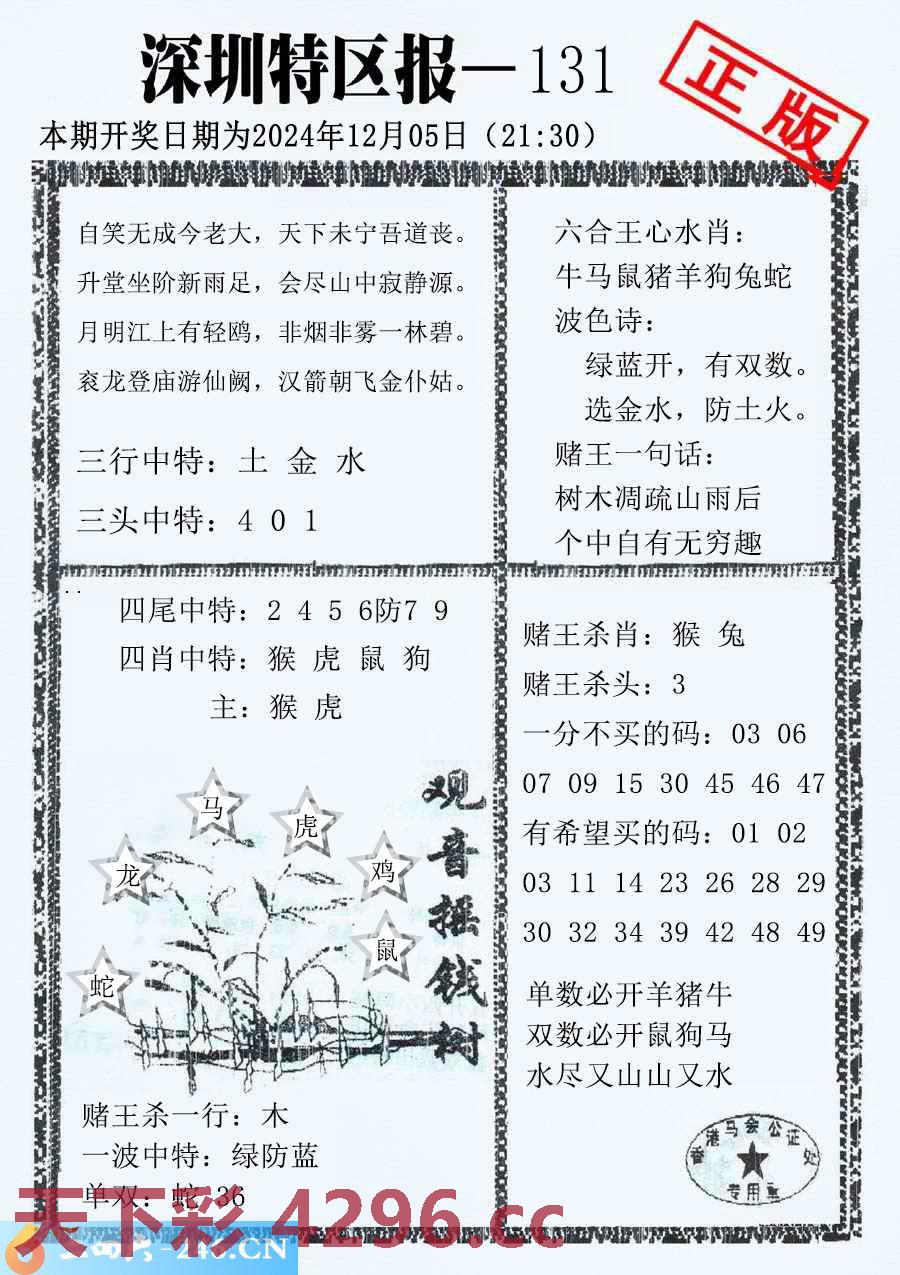 深圳特区报—131
正版
本期开奖日期为2024年12月05日（21:30）
自笑无成今老大，天下未宁吾道丧。
升堂坐阶新雨足，会尽山中寂静源。
月明江上有轻鸥，非烟非雾一林碧。
衮龙登庙游仙阙，汉箭朝飞金仆姑。
三行中特：土 金 水
三头中特：4 0 1
六合王心水肖：
牛马鼠猪羊狗兔蛇
波色诗：
绿蓝开，有双数。
选金水，防土火。
赌王一句话：
树木凋疏山雨后
个中自有无穷趣
四尾中特：2 4 5 6防7 9
四肖中特：猴 虎 鼠 狗
主：猴 虎
马
虎
龙
鸡
鼠
蛇
观音摇钱树
赌王杀一行：木
一波中特：绿防蓝
单双：蛇 36
赌王杀肖：猴 兔
赌王杀头：3
一分不买的码：03 06
07 09 15 30 45 46 47
有希望买的码：01 02
03 11 14 23 26 28 29
30 32 34 39 42 48 49
单数必开羊猪牛
双数必开鼠狗马
水尽又山山又水
香港马会公证处
专用章
天下彩4296.cc